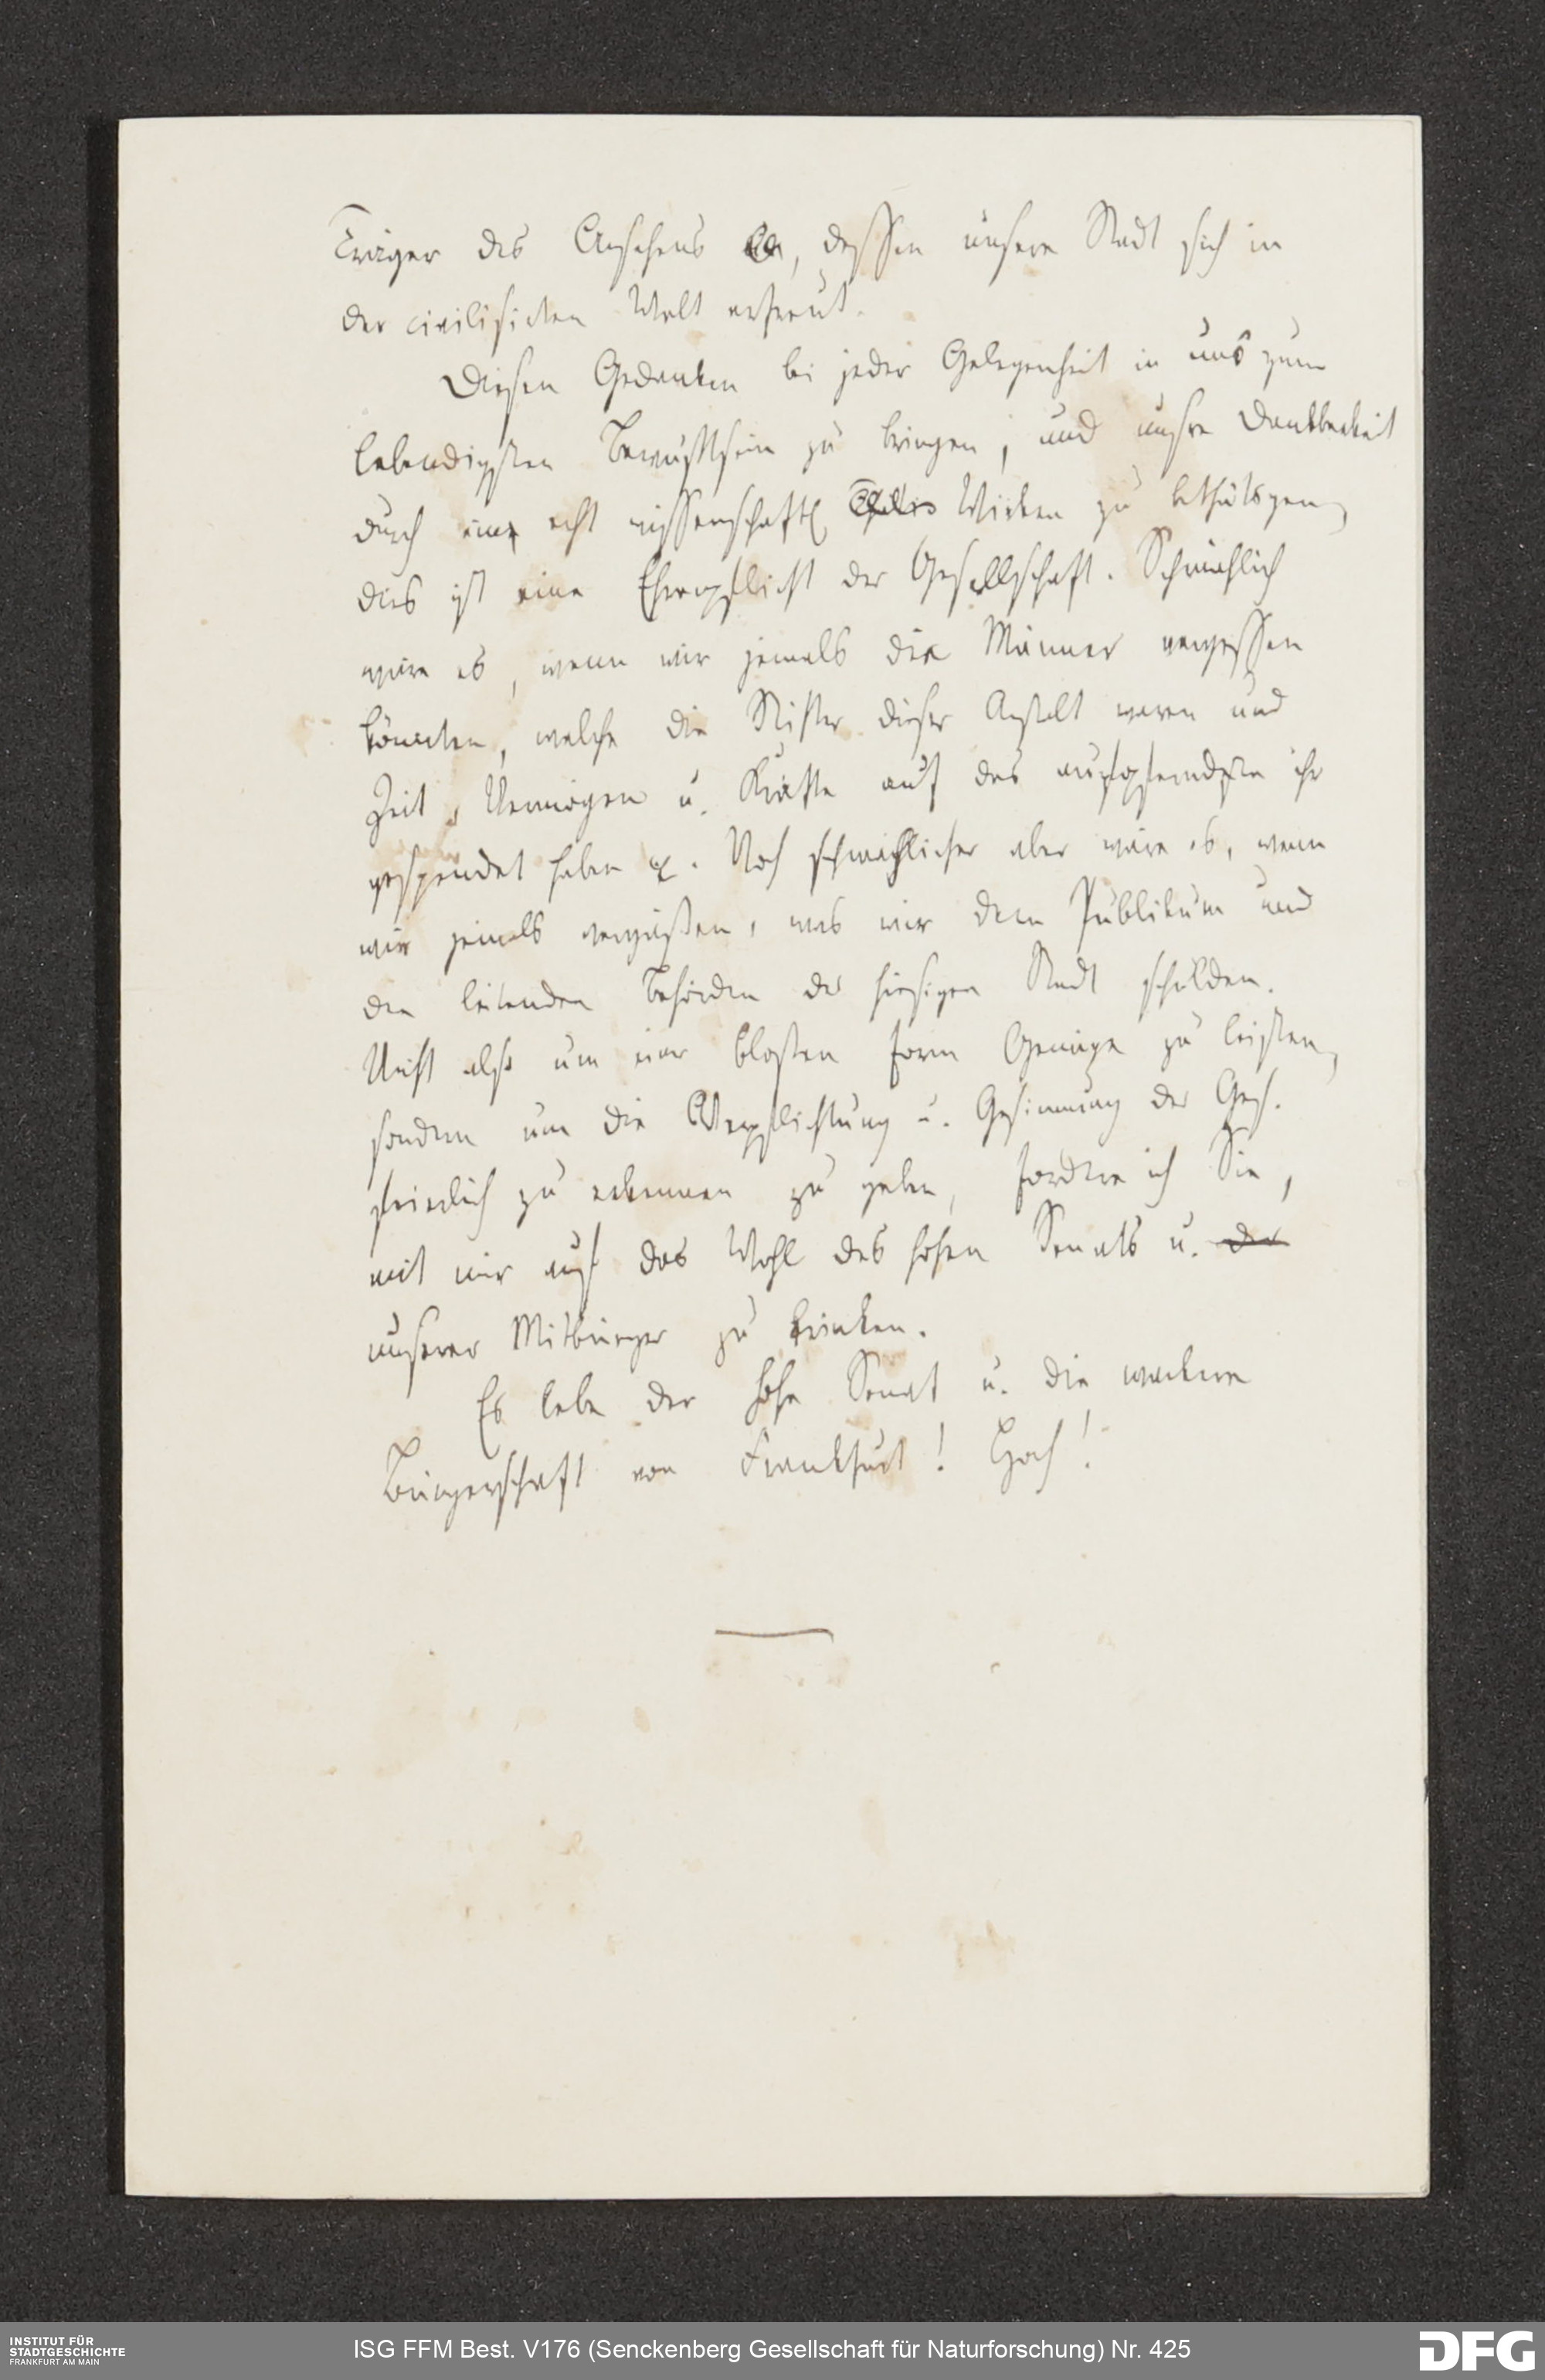 Träger des Ansehens, dessen unsere Stadt sich in
der civilisirten Welt erfreut.
Diesen Gedanken bei jeder Gelegenheit in uns zum
lebendigsten Bewußtsein zu bringen, und unsre Dankbarkeit
durch ein echt wissenschaftl. Wirken zu bethätigen,
dies ist eine Ehrenpflicht der Gesellschaft. Schmählich
wäre es, wenn wir jemals die Männer vergessen
könnten, welche die Stifter dieser Anstalt waren und
Zeit, Vermögen u. Kräfte auf das aufopferndste ihr
gespendet haben. Noch schmählicher aber wäre es, wenn
wir jemals vergäßen, was wir dem Publikum und
den leitenden Behörden der hiesigen Stadt schulden.
Nicht also um einer bloßen Form Genüge zu leisten,
sondern um die Verpflichtung u. Gesinnung der Ges.
feierlich zu erkennen zu geben, fordere ich Sie,
mit mir auf das Wohl des hohen Senats u. der
unserer Mitbürger zu trinken.
Es lebe der hohe Senat u. die wackere
Bürgerschaft von Frankfurt! Hoch!
INSTITUT FÜR
STADTGESCHICHTE
FRANKFURT AM MAIN
ISG FFM Best. V176 (Senckenberg Gesellschaft für Naturforschung) Nr. 425
DFG